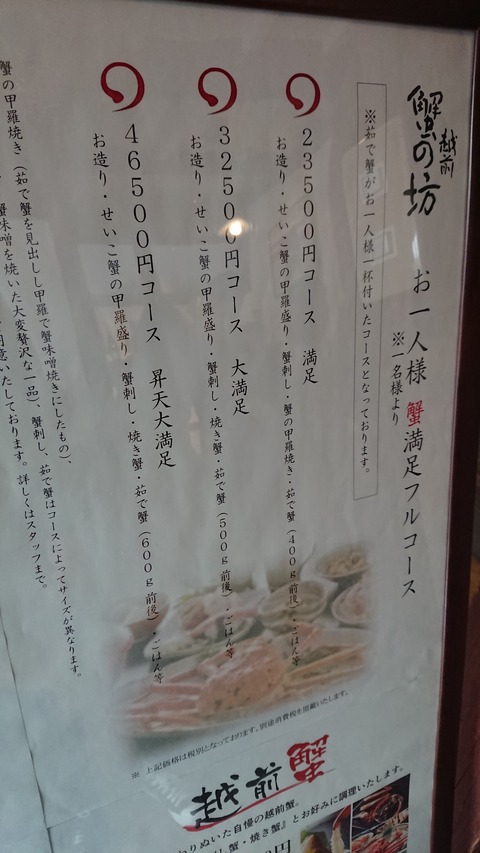 越前
蟹の坊
お一人様 蟹満足フルコース
※一名様より
※茹で蟹がお一人様一杯付いたコースとなっております。
23500円コース 満足
お造り・せいこ蟹の甲羅盛り・蟹刺し・蟹の甲羅焼き・茹で蟹(400g前後)・ごはん等
32500円コース 大満足
お造り・せいこ蟹の甲羅盛り・蟹刺し・焼き蟹・茹で蟹(500g前後)・ごはん等
46500円コース 昇天大満足
お造り・せいこ蟹の甲羅盛り・蟹刺し・焼き蟹・茹で蟹(600g前後)・ごはん等
蟹の甲羅焼き(茹で蟹を見出しし甲羅で蟹味噌焼きにしたもの)、
蟹味噌を焼いた大変贅沢な一品)、蟹刺し、茹で蟹はコースによってサイズが異なります。
いたしております。詳しくはスタッフまで。
※ 上記価格は税別となっております。別途消費税を頂戴いたします。
越前蟹
りぬいた自慢の越前蟹。
蟹・焼き蟹』とお好みに調理いたします。
円